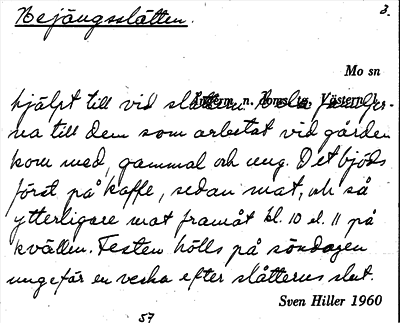 Bejängsslåtten.
3.
Mo sn
hjälpt till vid slåttern. Hela familjer-
na till dem som arbetat vid gården
kom med, gammal och ung. Det bjöds
först på kaffe, sedan mat, och så
ytterligare mat framåt kl. 10 el. 11 på
kvällen. Festen hölls på söndagen
ungefär en vecka efter slåtterns slut.
Sven Hiller 1960
57